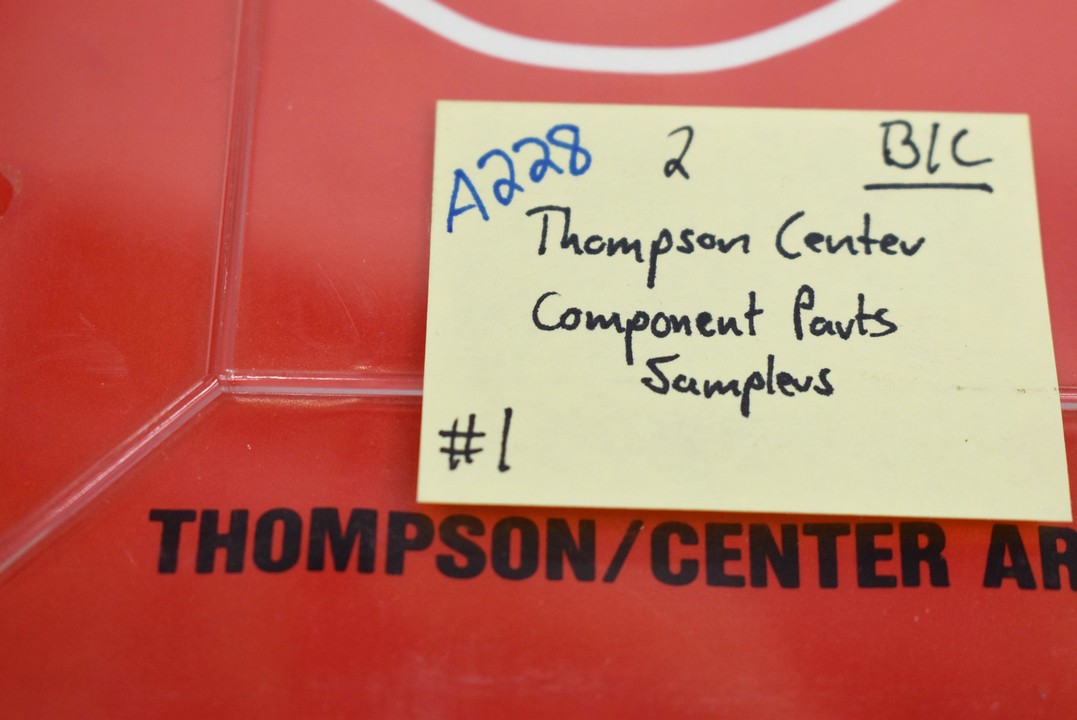 A228 2 B/C
Thompson Center
Component Parts
Samplers
#1
THOMPSON/CENTER AR